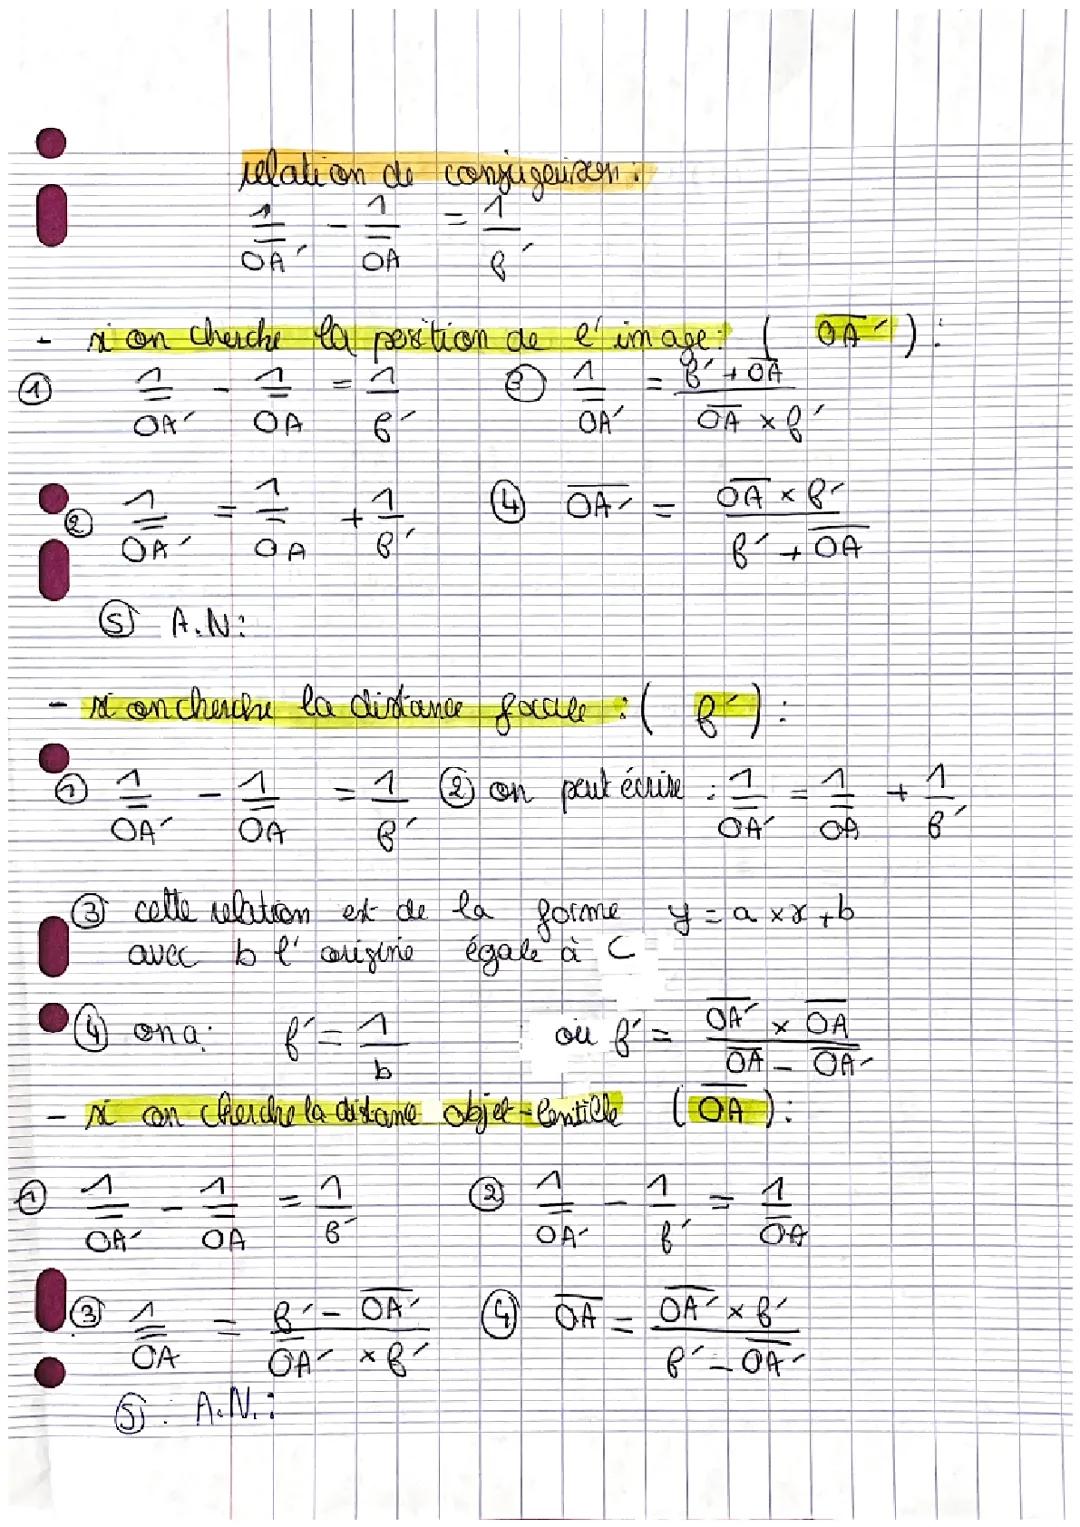 relation de conjugaison :
1/OA' - 1/OA = 1/f'
- si on cherche la position de l'image : ( OA' ) :
① 1/OA' - 1/OA = 1/f' ③ 1/OA' = (f' + OA)/(OA × f')
② 1/OA' = 1/OA + 1/f' ④ OA' = (OA × f')/(f' + OA)
⑤ A.N :
- si on cherche la distance focale : ( f' ) :
① 1/OA' - 1/OA = 1/f' ② on peut écrire : 1/OA' = 1/OA + 1/f'
③ cette relation est de la forme y = a × x + b
avec b l'origine égale à C
④ on a : f' = 1/b ou f' = (OA' × OA)/(OA - OA')
- si on cherche la distance objet-lentille ( OA ) :
① 1/OA' - 1/OA = 1/f' ② 1/OA' - 1/f' = 1/OA
③ 1/OA = (f' - OA')/(OA' × f') ④ OA = (OA' × f')/(f' - OA')
⑤ . A.N. :